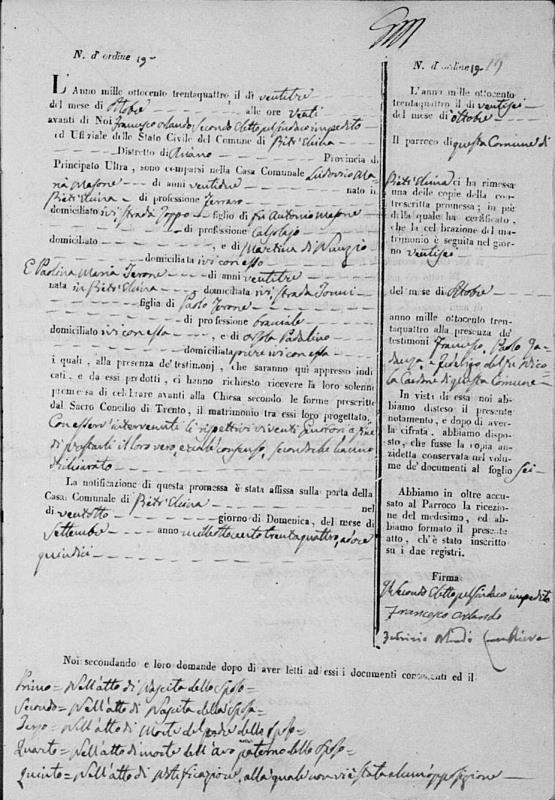 N. d'ordine 19
L'Anno mille ottocento trentaquattro il dì ventitre
del mese di Ottobre alle ore venti
avanti di Noi Francesco Orlando, Secondo Eletto pel Sindaco impedito
ed Uffiziale dello Stato Civile del Comune di Pietr'Elcina
Distretto di Ariano Provincia di
Principato Ultra, sono comparsi nella Casa Comunale Ludovico Ma
ria Masone di anni ventidue nato in
Pietr'Elcina di professione Ferraro
domiciliato ivi strada Zoppo figlio di fu Antonio Masone
di professione Calzolajo
domiciliato e di Martina di Nunzio
domiciliata ivi con esso
E Paolina Maria Ierone di anni ventitre
nata in Pietr'Elcina domiciliata ivi strada
figlia di Paolo Ierone
di professione Braciale
domiciliato ivi con esta e di Paladino
domiciliata pure ivi con esta
i quali, alla presenza de' testimonj, che saranno qui appresso indi
cati, e da essi prodotti, ci hanno richiesto ricevere la loro solenne
promessa di celebrare avanti alla Chiesa secondo le forme prescritte
dal Sacro Concilio di Trento, il matrimonio tra essi loro progettato,
Con essere intervenuti li rispettivi viventi Genitori a fine
di prestarli il loro vero, e consenso, secondo che hanno
dichiarato
La notificazione di questa promessa è stata affissa sulla porta della
Casa Comunale di Pietr'Elcina nel
dì ventotto giorno di Domenica, del mese di
Settembre anno mille ottocento trentaquattro, ad ore
quindici
N. d'ordine 19
L'anno mille ottocento
trentaquattro il dì ventisei
del mese di Ottobre
Il parroco di questa Comune di
Pietr'Elcina ci ha rimessa
una delle copie della con
trescritta promessa; in piè
della quale ha certificato,
che la celebrazione del ma
trimonio è seguita nel gior
no ventisei
del mese di Ottobre
anno mille ottocento tren
taquattro alla presenza de'
testimonj Francesco, Paolo Ia
danza, e Fedeligo del fu Nico
la Cardone di questa Comune
In vista di essa noi ab
biamo disteso il presente
notamento, e dopo di aver
la cifrata, abbiamo dispo
sto, che fusse la copia an
zidetta conservata nel volu
me de' documenti al foglio sei
Abbiamo in oltre accu
sato al Parroco la ricezio
ne del medesimo, ed ab
biamo formato il presente
atto, ch'è stato inscritto
su i due registri.
Firma
Il Secondo Eletto pel Sindaco impedito
Francesco Orlando
Noi secondando e loro domande dopo di aver letti ad essi i documenti consistenti ed il
Primo = Nell'atto di Nascita dello Sposo =
Secondo = Nell'atto di Nascita della Sposa =
Terzo = Nell'atto di Morte del padre dello Sposo =
Quarto = Nell'atto di morte dell'Avo paterno dello Sposo =
Quinto = Nell'atto di Notificazione, alla quale non vi è stata alcun'opposizione